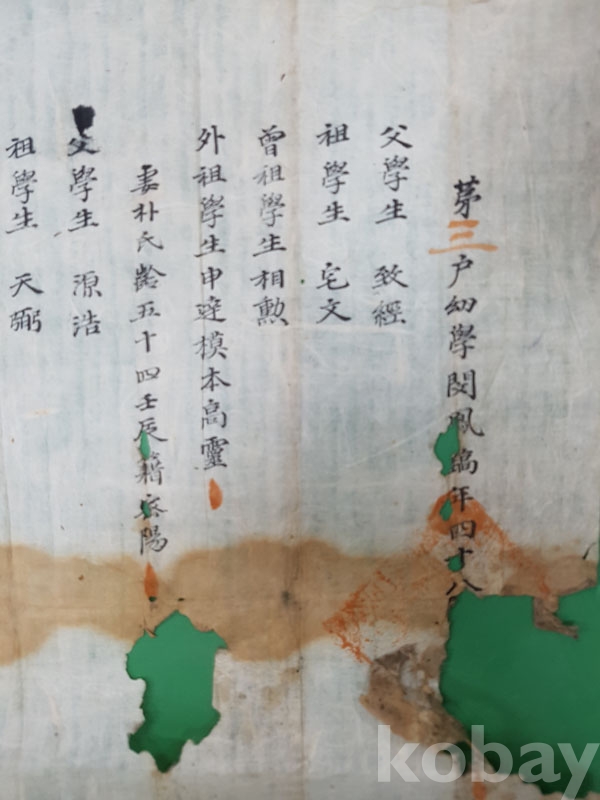 第三戶幼學閔鳳 年四十八
父學生 致經
祖學生 宅文
曾祖學生相勳
外祖學生申 模本高靈
妻朴氏齡五十四壬辰籍密陽
父學生 源浩
祖學生 天弼
kobay